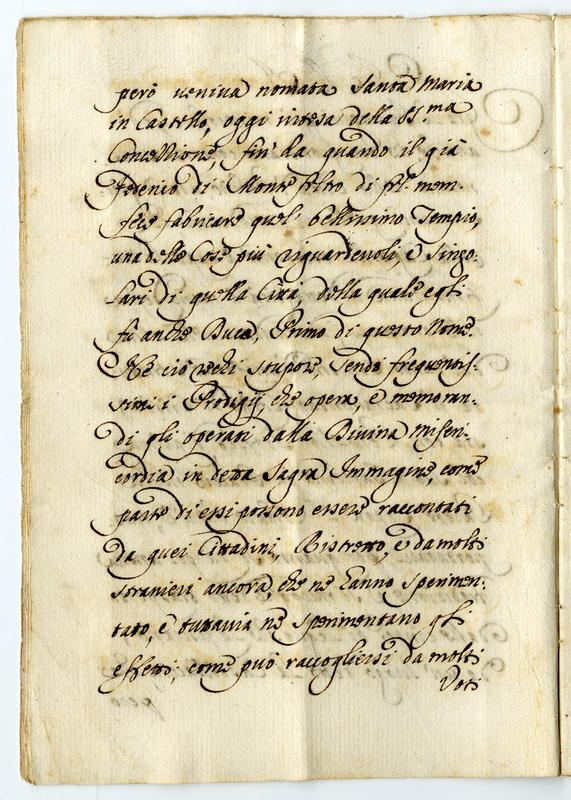 però veniva nomata Santa Maria
in Castello, oggi intesa della SS.ma
Concessione, fin' da quando il già
Federico di Monte feltro di fel. mem.
fece fabricare quel' bellissimo Tempio,
una delle Cose più riguardevoli, e singo-
lari di quella Città, della quale egli
fù anche Duca, Primo di questo Nome.
Ne ciò rechi stupore, sendo frequentis-
simi i Prodigij, che opera, e memoran-
di gli operati dalla Divina Miseri-
cordia in detta Sagra Immagine, come
parte di essi possono essere raccontati
da quei Cittadini, Distretto, e da molti
stranieri ancora, che ne hanno sperimen-
tato, e tuttavia ne sperimentano gli
effetti; come può raccogliersi da molti
Voti